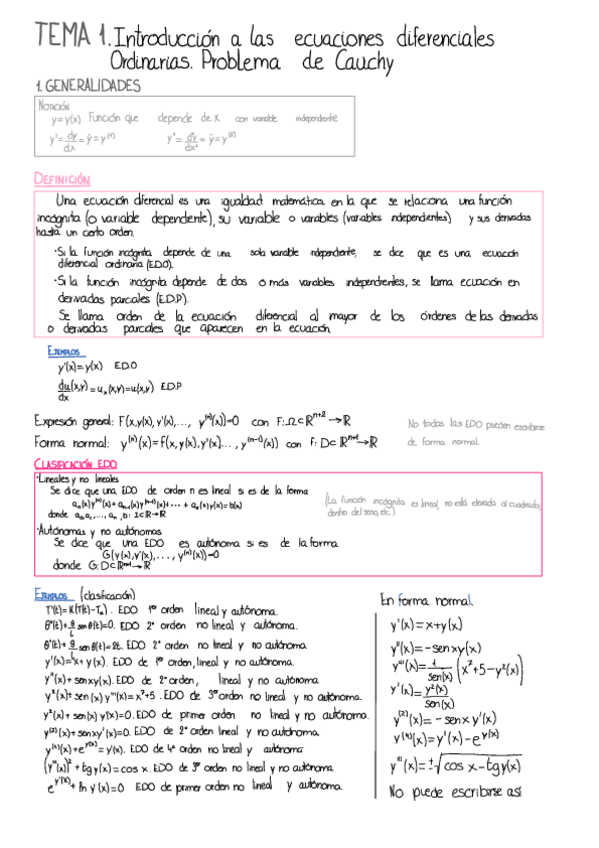 TEMA 1. Introducción a las ecuaciones diferenciales
Ordinarias. Problema de Cauchy
1. GENERALIDADES
NOTACIÓN
y=y(x) Función que depende de x con variable independiente
y'=dy/dx=ẏ=y⁽¹⁾ y''=d²y/dx²=ÿ=y⁽²⁾
DEFINICIÓN
Una ecuación diferencial es una igualdad matemática en la que se relaciona una función
incógnita (o variable dependiente), su variable o variables (variables independientes) y sus derivadas
hasta un cierto orden.
·Si la función incógnita depende de una sola variable independiente, se dice que es una ecuación
diferencial ordinaria (E.D.O).
·Si la función incógnita depende de dos o más variables independientes, se llama ecuación en
derivadas parciales (E.D.P).
Se llama orden de la ecuación diferencial al mayor de los órdenes de las derivadas
o derivadas parciales que aparecen en la ecuación.
EJEMPLOS
y'(x)=y(x) E.D.O
du/dx(x,y)=uₓ(x,y)=u(x,y) E.D.P
Expresión general: F(x,y(x),y'(x),..., y⁽ⁿ⁾(x))=0 con F:Ω⊂ℝⁿ⁺²→ℝ
Forma normal: y⁽ⁿ⁾(x)=f(x,y(x),y'(x)...,y⁽ⁿ⁻¹⁾(x)) con f: D⊂ℝⁿ⁺¹→ℝ
No todas las EDO pueden escribirse
de forma normal.
CLASIFICACIÓN EDO
·Lineales y no lineales
Se dice que una EDO de orden n es lineal si es de la forma
aₙ(x)y⁽ⁿ⁾(x)+aₙ₋₁(x)y⁽ⁿ⁻¹⁾(x)+...+a₀(x)y(x)=b(x)
donde a₀,a₁,...,aₙ,b: I⊂ℝ→ℝ
(La función incógnita es lineal, no está elevada al cuadrado,
dentro del seno, etc.)
·Autónomas y no autónomas
Se dice que una EDO es autónoma si es de la forma
G(y(x),y'(x),..., y⁽ⁿ⁾(x))=0
donde G: D⊂ℝⁿ⁺¹→ℝ
EJEMPLOS (clasificación)
T'(t)=K(T(t)-Tₐ). EDO 1ᵉʳ orden lineal y autónoma.
θ''(t)+g/l sen θ(t)=0. EDO 2º orden no lineal y autónoma.
θ''(t)+g/l sen θ(t)=2t. EDO 2º orden no lineal y no autónoma
EDO de 1ᵉʳ orden, lineal y no autónoma.
y''(x)+senxy(x). EDO de 2º orden, lineal y no autónoma
y²(x)+sen(x)y'''(x)=x⁷+5. EDO de 3ᵉʳ orden no lineal y no autónoma.
y²(x)+sen(x)y'(x)=0. EDO de primer orden no lineal y no autónoma.
y⁽²⁾(x)+senxy'(x)=0. EDO de 2º orden lineal y no autónoma.
EDO de 4º orden no lineal y autónoma
(y'''(x))²+tgy(x)=cos x. EDO de 3ᵉʳ orden no lineal y no autónoma.
e^y'(x)+ln y(x)=0 EDO de primer orden no lineal y autónoma.
En forma normal.
y'(x)=x+y(x)
y''(x)=-senxy(x)
y'''(x)=1/sen(x) (x⁷+5-y²(x))
y'(x)=y²(x)/sen(x)
y⁽²⁾(x)=-senxy'(x)
y⁽⁴⁾(x)=y'(x)-e^y(x)
y'''(x)=±√cos x-tgy(x)
No puede escribirse así